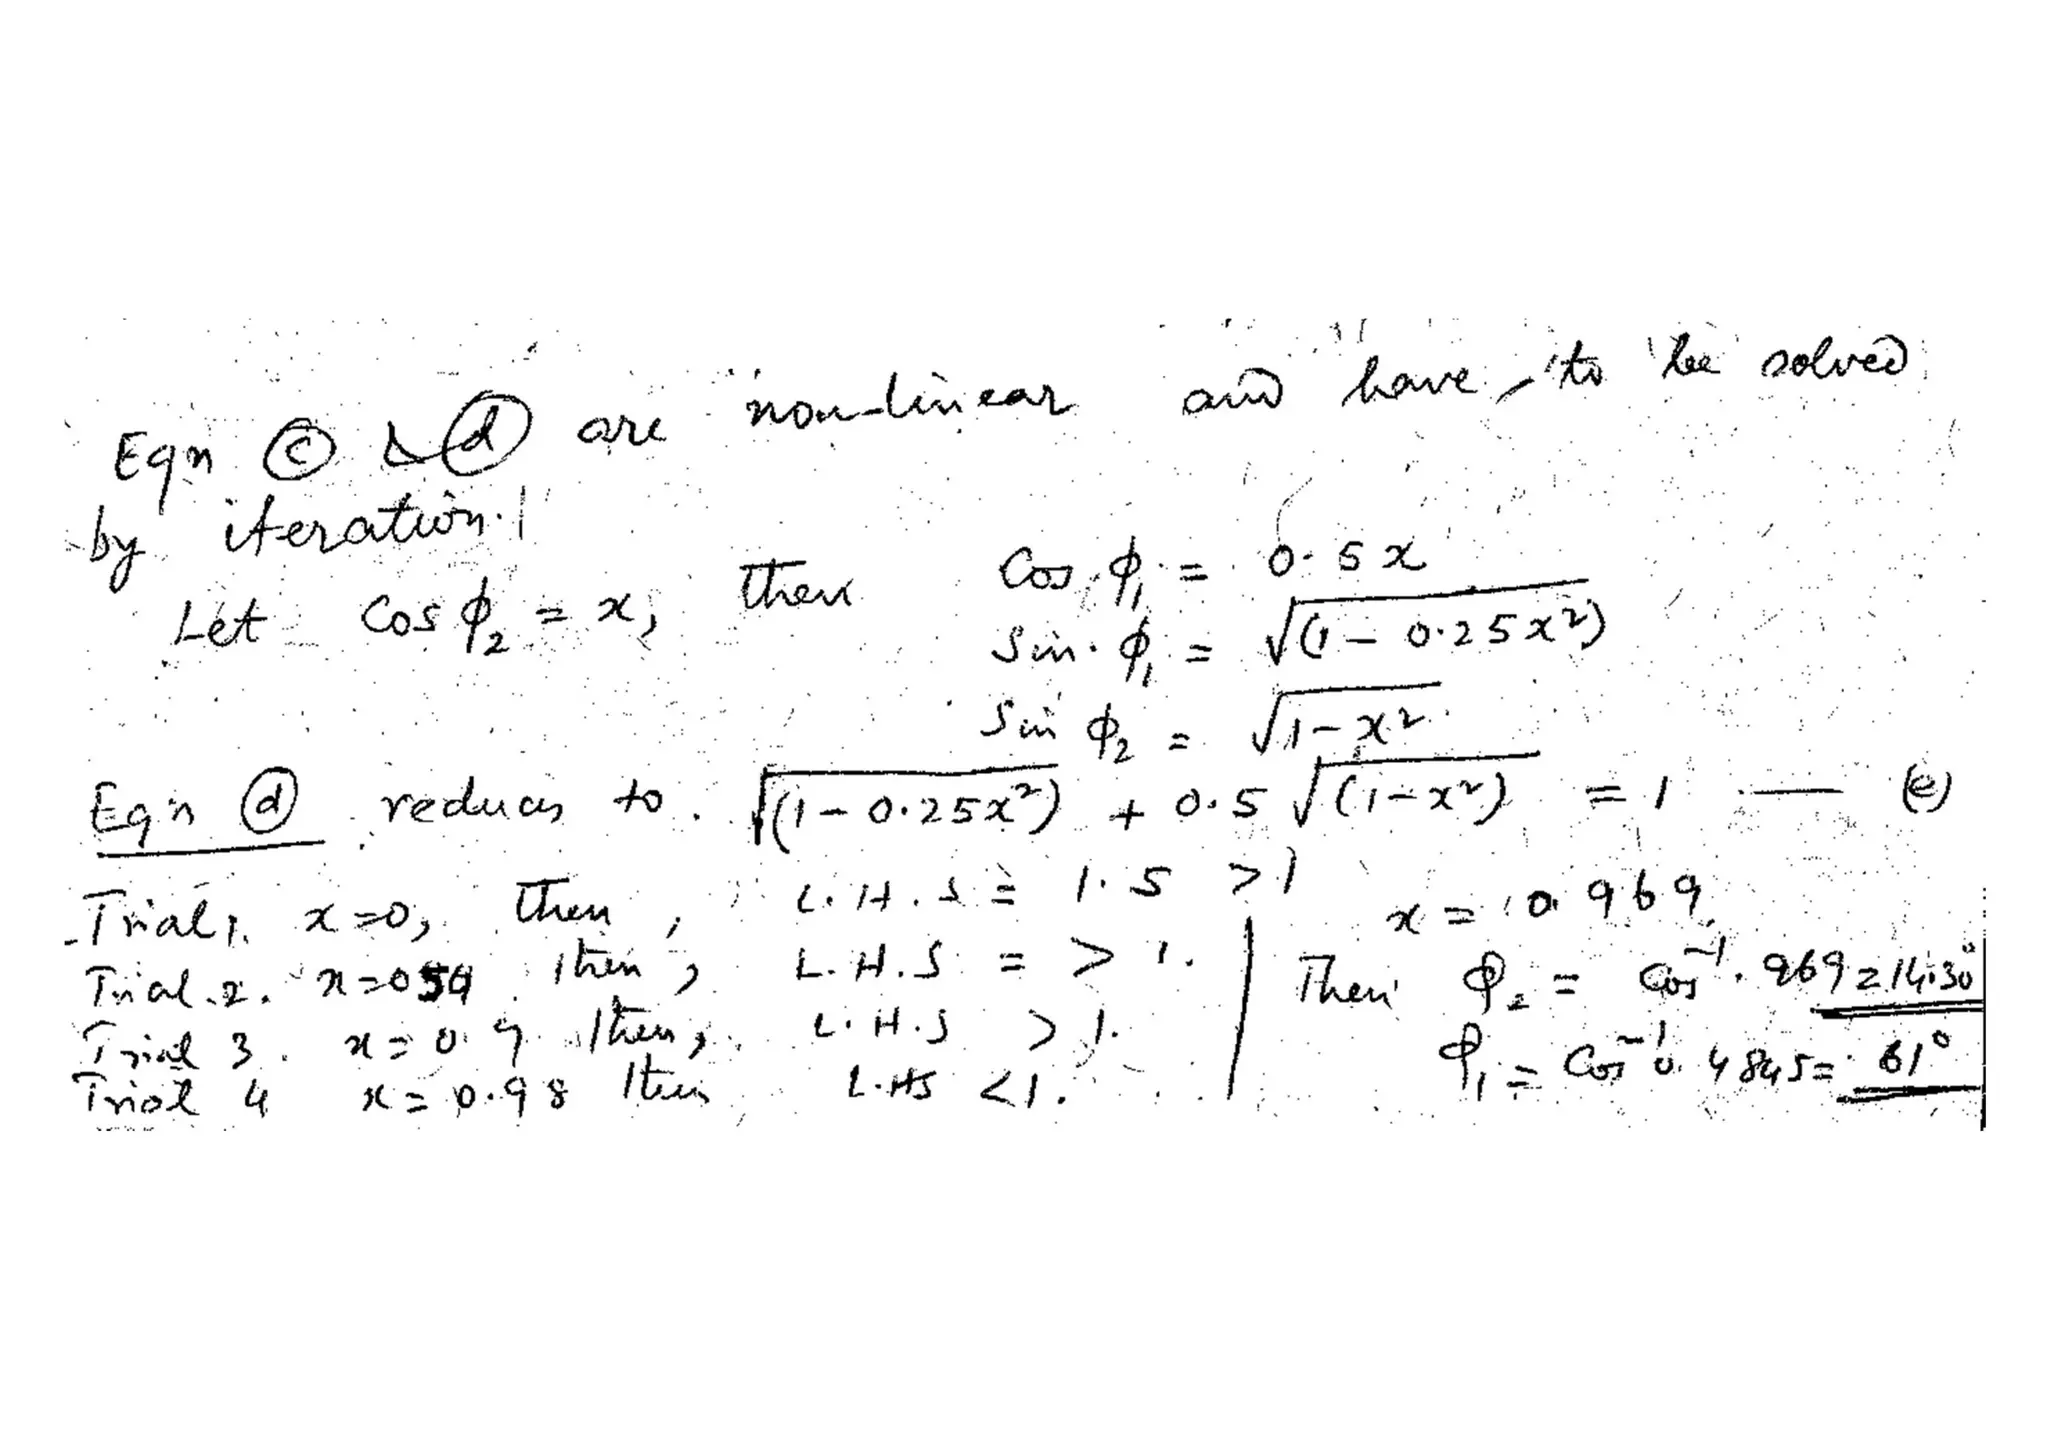 Eqn ⓒ & ⓓ are non-linear and have to be solved
by iteration.
Let Cos ϕ₂ = x, then Cos ϕ₁ = 0.5x
Sin ϕ₁ = √(1 - 0.25x²)
Sin ϕ₂ = √1-x²
Eqn ⓓ reduces to √(1-0.25x²) + 0.5 √(1-x²) = 1 — (e)
Trial 1. x=0, then, L.H.S = 1.5 >1
Trial 2. then, L.H.S = > 1.
Trial 3. x=0.9 then, L.H.S > 1.
Trial 4 x=0.98 then L.HS <1.
x = 0.969.
Then ϕ₂ = Cos⁻¹ .969 = 14.30°
ϕ₁ = Cos⁻¹ 0.4845 = 61°